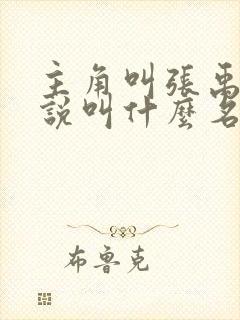 主角叫張禹
說叫什麼名
布魯克